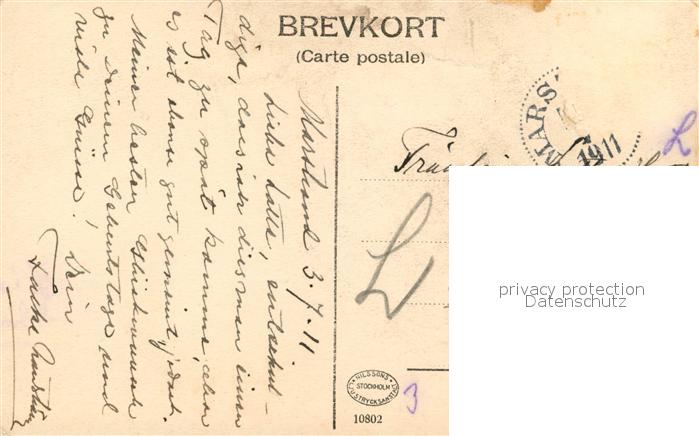 BREVKORT
(Carte postale)
Marstrand 3.7.11
Liebe Lotte, entschul-
dige, dass ich diesmal einen
Tag zu spät komme, aber
es ist doch gut gemeint,
Meinen besten Glückwunsch
zu Deinem Geburtstage und
viele Grüsse!
Dein
MARS
1911
L
Fräulein
L
privacy protection
Datenschutz
NILSSONS
STOCKHOLM
LJUSTRYCKSANSTALT
3
10802